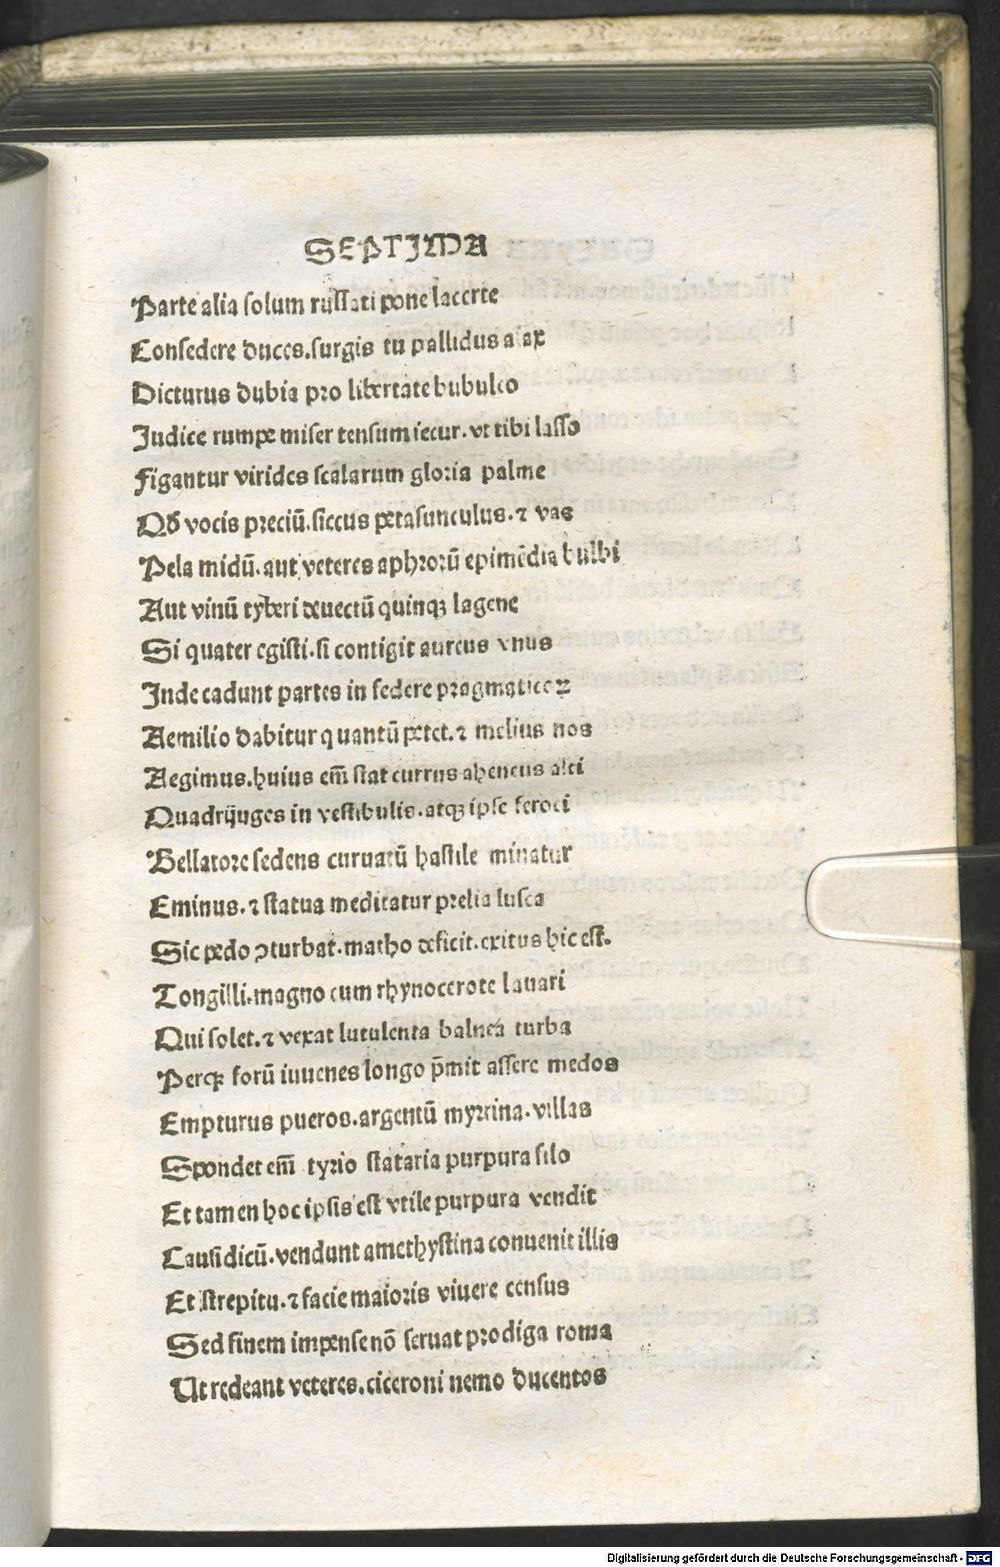 SEPTIMA
Parte alia solum russati pone lacerte
Consedere duces.surgis tu pallidus aiax
Dicturus dubia pro libertate bubulco
Judice rumpe miser tensum iecur.vt tibi lasso
Figantur virides scalarum gloria palme
Qđ vocis preciū.siccus petasunculus.⁊ vas
Pela midū.aut veteres aphrorū epimēdia bulbi
Aut vinū tyberi deuectū quinqꝫ lagene
Si quater egisti.si contigit aureus vnus
Inde cadunt partes in federe pragmaticoꝝ
Aemilio dabitur quantū petet.⁊ melius nos
Aegimus.huius em̄ stat currus aheneus alti
Quadrijuges in vestibulis.atqꝫ ipse feroci
Bellatore sedens curuatū hastile minatur
Eminus.⁊ statua meditatur prelia lusca
Sic pedo ꝯturbat.matho deficit.exitus hic est.
Tongilli.magno cum rhynocerote lauari
Qui solet.⁊ vexat lutulenta balnea turba
Perqꝫ forū iuuenes longo p̄mit assere medos
Empturus pueros.argentū myrrina.villas
Spondet em̄ tyrio stataria purpura filo
Et tamen hoc ipsis est vtile purpura vendit
Causidicū.vendunt amethystina conuenit illis
Et strepitu.⁊ facie maioris viuere census
Sed finem impense nō seruat prodiga roma
Ut redeant veteres.ciceroni nemo ducentos
Digitalisierung gefördert durch die Deutsche Forschungsgemeinschaft - DFG